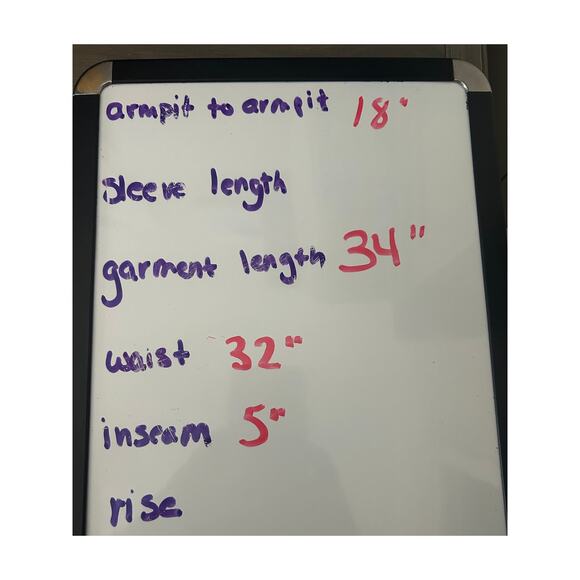 armpit to armpit 18"
sleeve length
garment length 34"
waist 32"
inseam 5"
rise